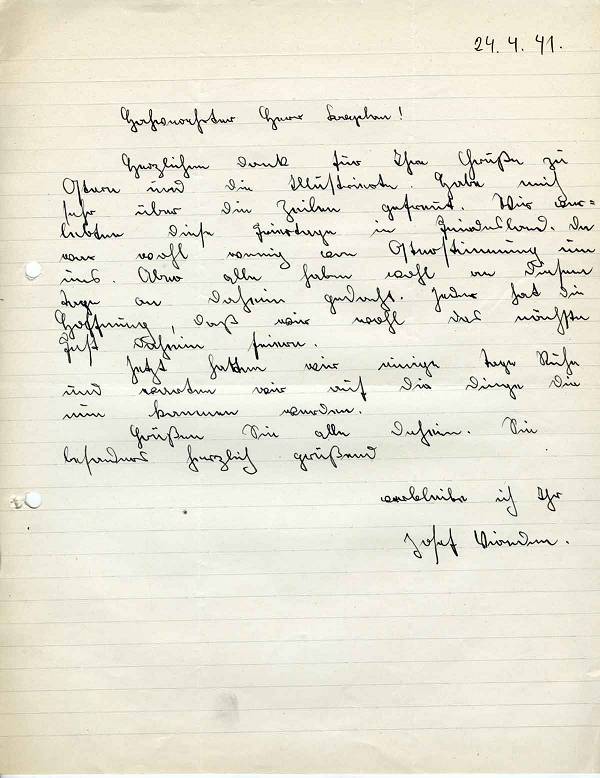 24. 4. 41.
Hochverehrter Herr Kaplan!
Herzlichen Dank für Ihre Grüße zu
Ostern und die Illustrierte. Habe mich
sehr über die Zeilen gefreut. Wir ver=
lebten diese Feiertage in Feindesland. Da
war wohl wenig von Osterstimmung um
uns. Aber alle haben wohl an diesem
Tage an daheim gedacht. Jeder hat die
Hoffnung, daß wir wohl das nächste
Fest daheim feiern.
Jetzt hatten wir einige Tage Ruhe
und warten wir auf die Dinge die
nun kommen werden.
Grüßen Sie alle daheim. Sie
besonders herzlich grüßend
verbleibe ich Ihr
Josef